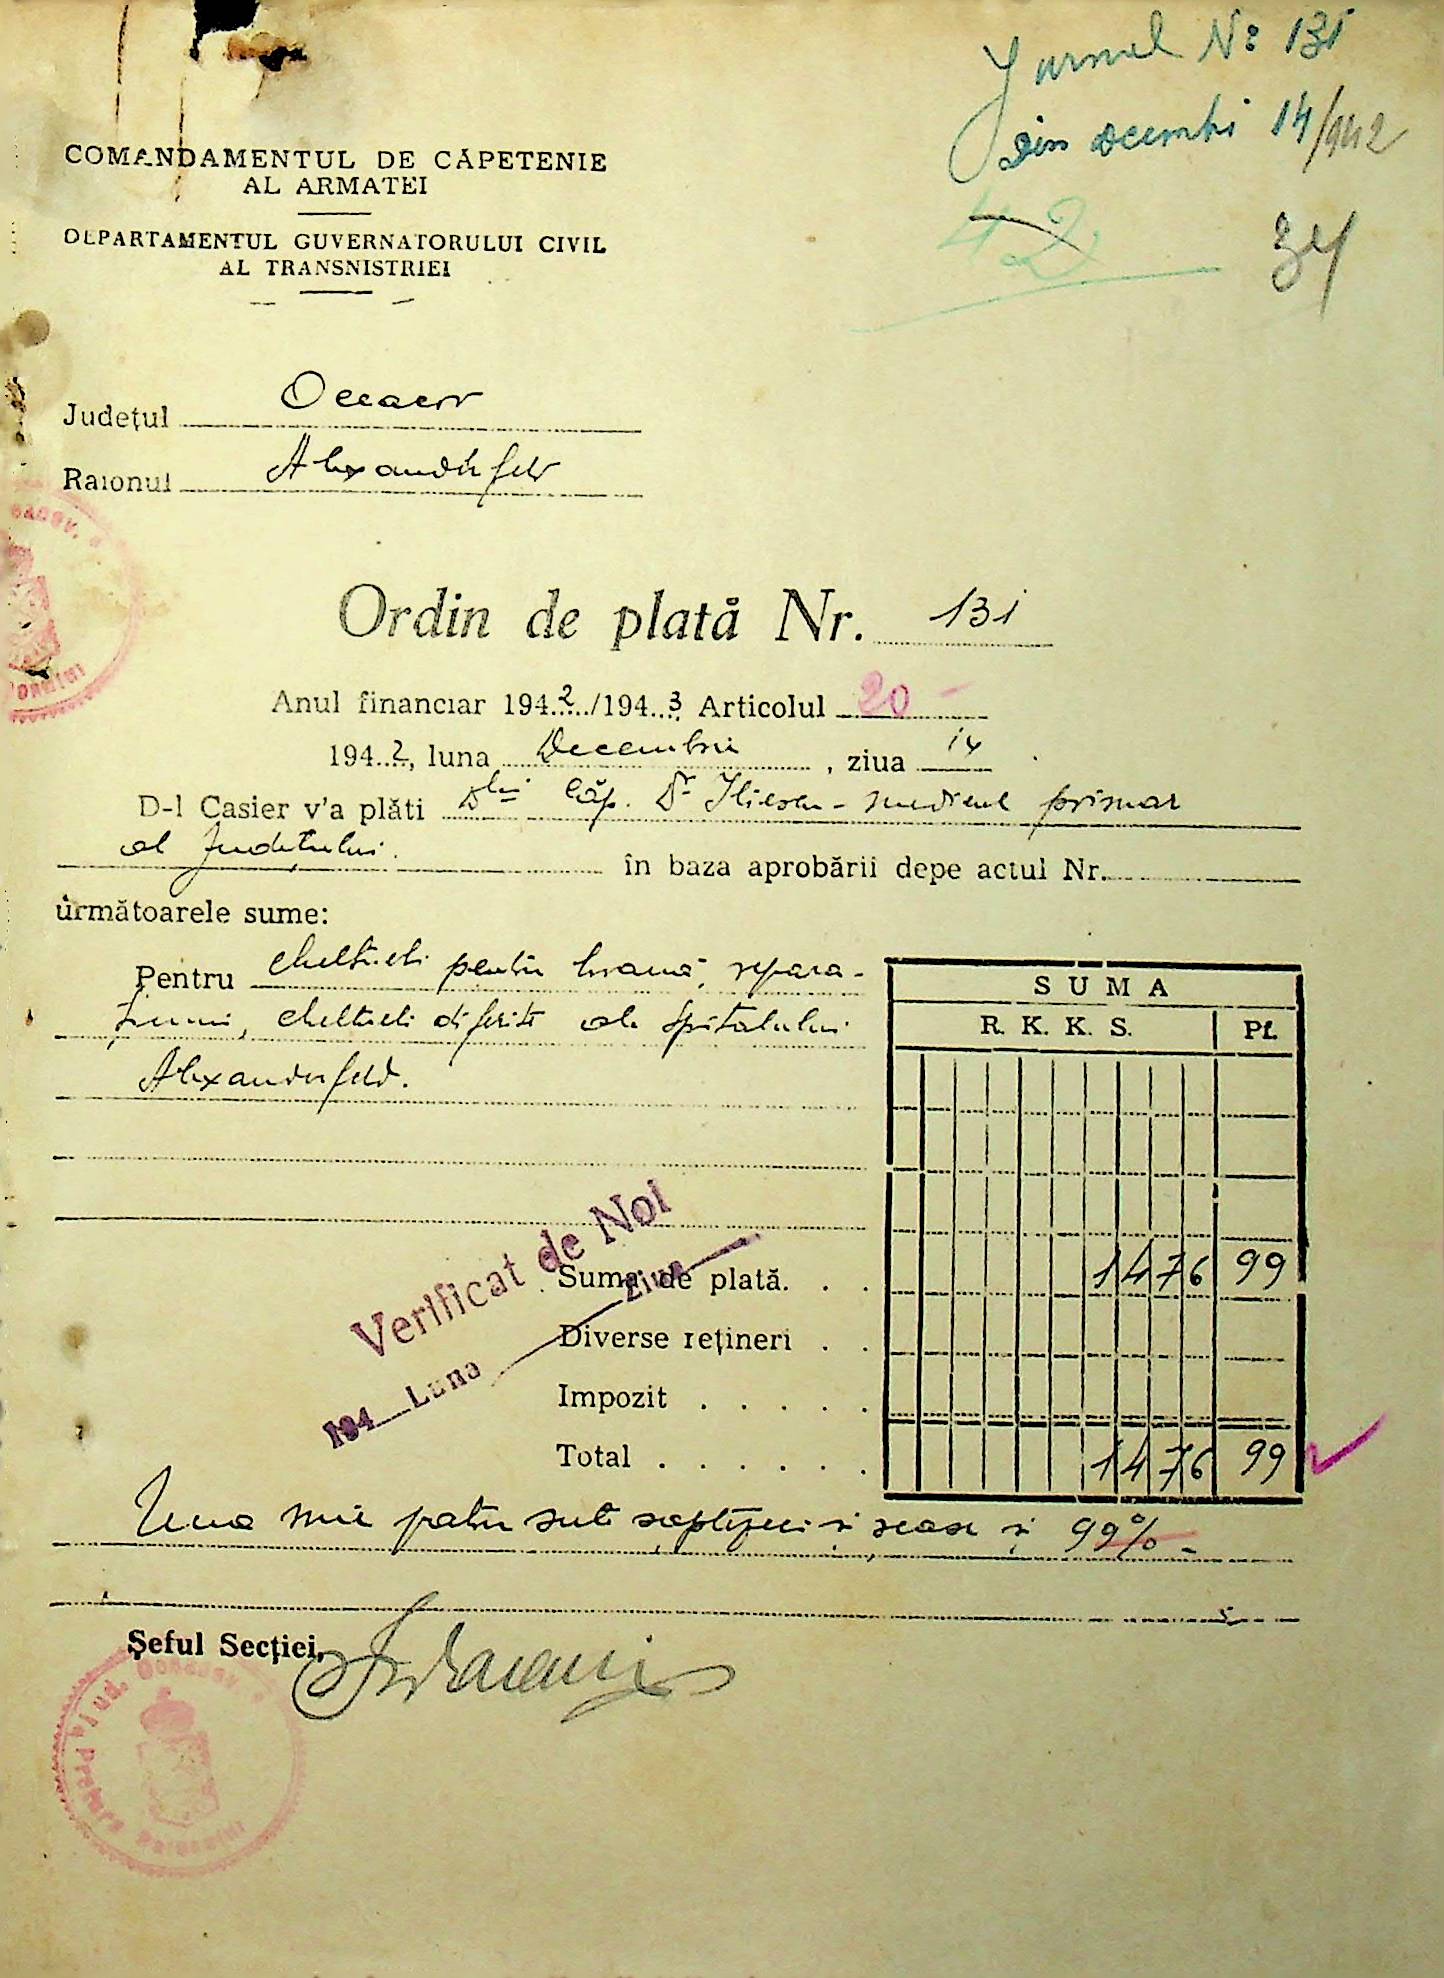 Jurnal No: 131
din Decembri 14/942
42
34
COMANDAMENTUL DE CĂPETENIE
AL ARMATEI
DEPARTAMENTUL GUVERNATORULUI CIVIL
AL TRANSNISTRIEI
Județul Oceacov
Raionul Alexanderfeld
Ordin de plată Nr. 131
Anul financiar 1942/1943 Articolul 20 -
1942, luna Decembrie, ziua 14
D-l Casier v'a plăti Dlui Căp. Dr Iliescu - medicul primar
al Județului. în baza aprobării depe actul Nr.
următoarele sume:
Pentru cheltueli pentru hrană, repara-
țiuni, cheltueli diferite ale Spitalului
Alexanderfeld.
SUMA
R. K. K. S. Pf.
Verificat de Noi
194 Luna Ziua
Suma de plată. . . 1476 99
Diverse rețineri . .
Impozit . . . . . .
Total . . . . . . . 1476 99
Una mie patru sute șaptezeci și șease și 99% -
Șeful Secției,